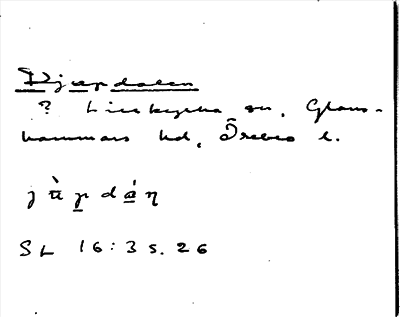 Djupdalen
? Lillkyrka sn, Glans-
hammars hd, Örebro l.
j ù̀ p d á η
SL 16:3 s. 26